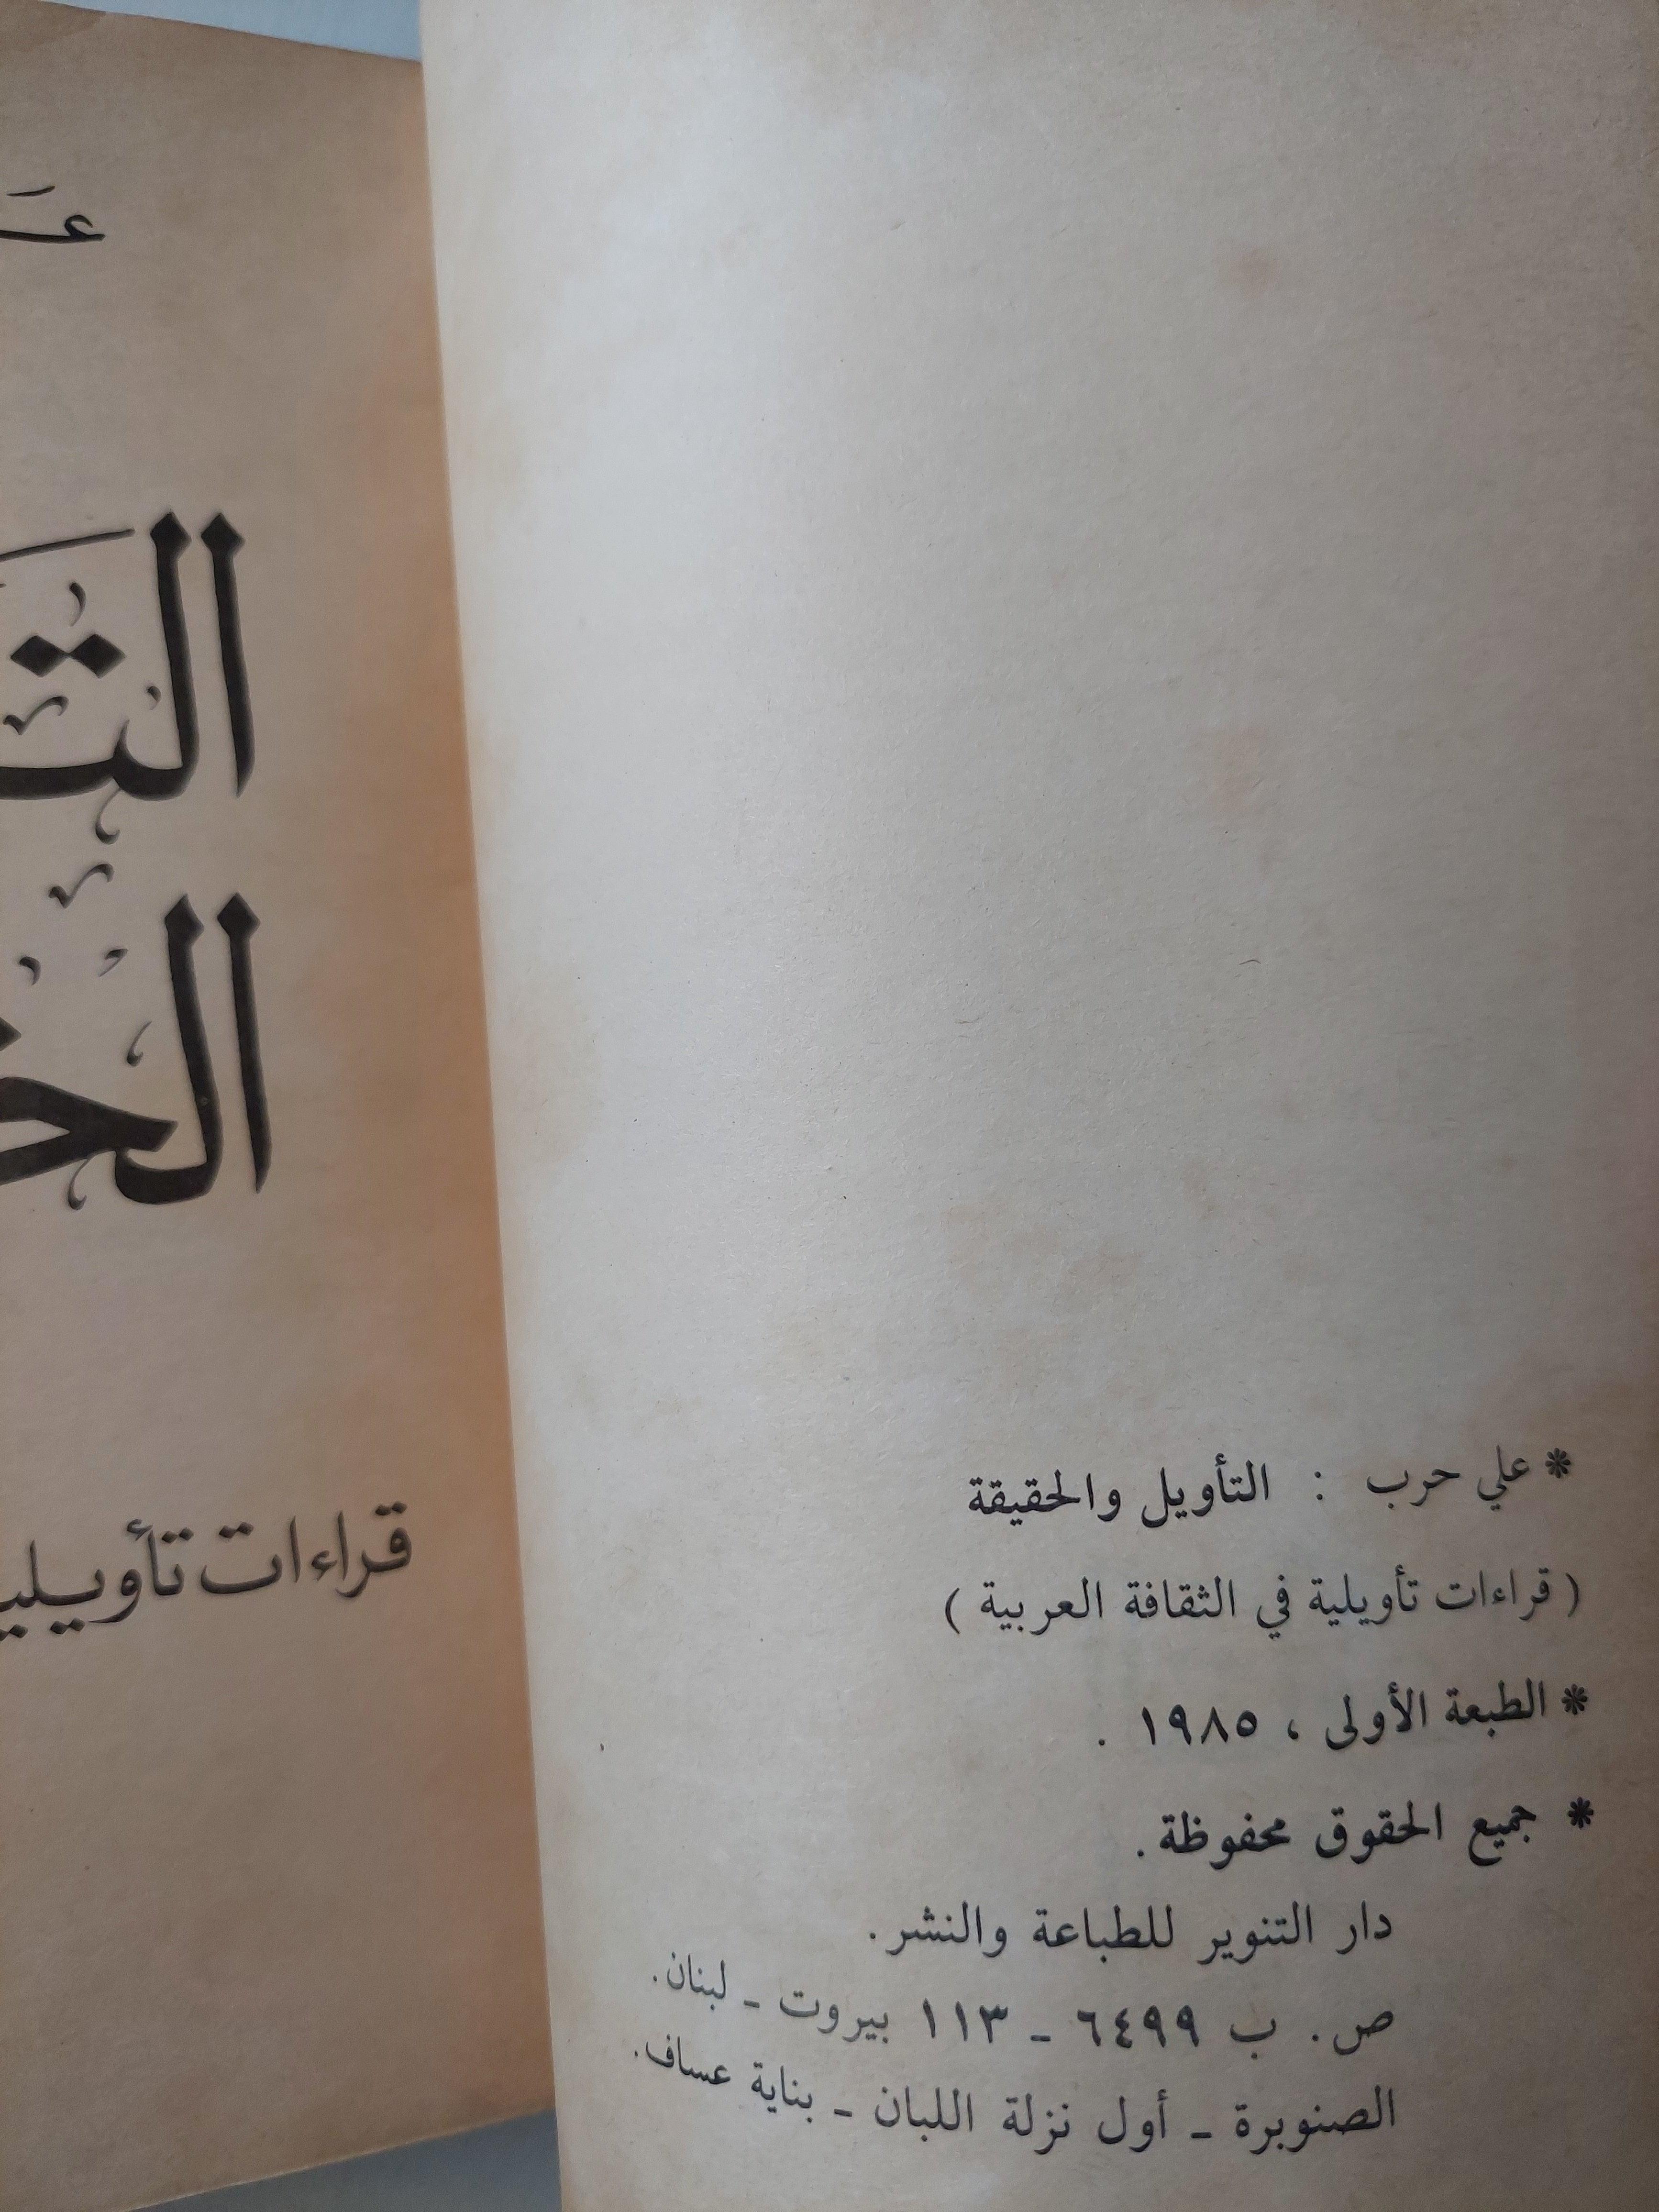 * علي حرب : التأويل والحقيقة
( قراءات تأويلية في الثقافة العربية )
* الطبعة الأولى ، ١٩٨٥ .
* جميع الحقوق محفوظة .
دار التنوير للطباعة والنشر.
ص. ب ٦٤٩٩ - ١١٣ بيروت - لبنان.
الصنوبرة - أول نزلة اللبان - بناية عساف.
قراءات